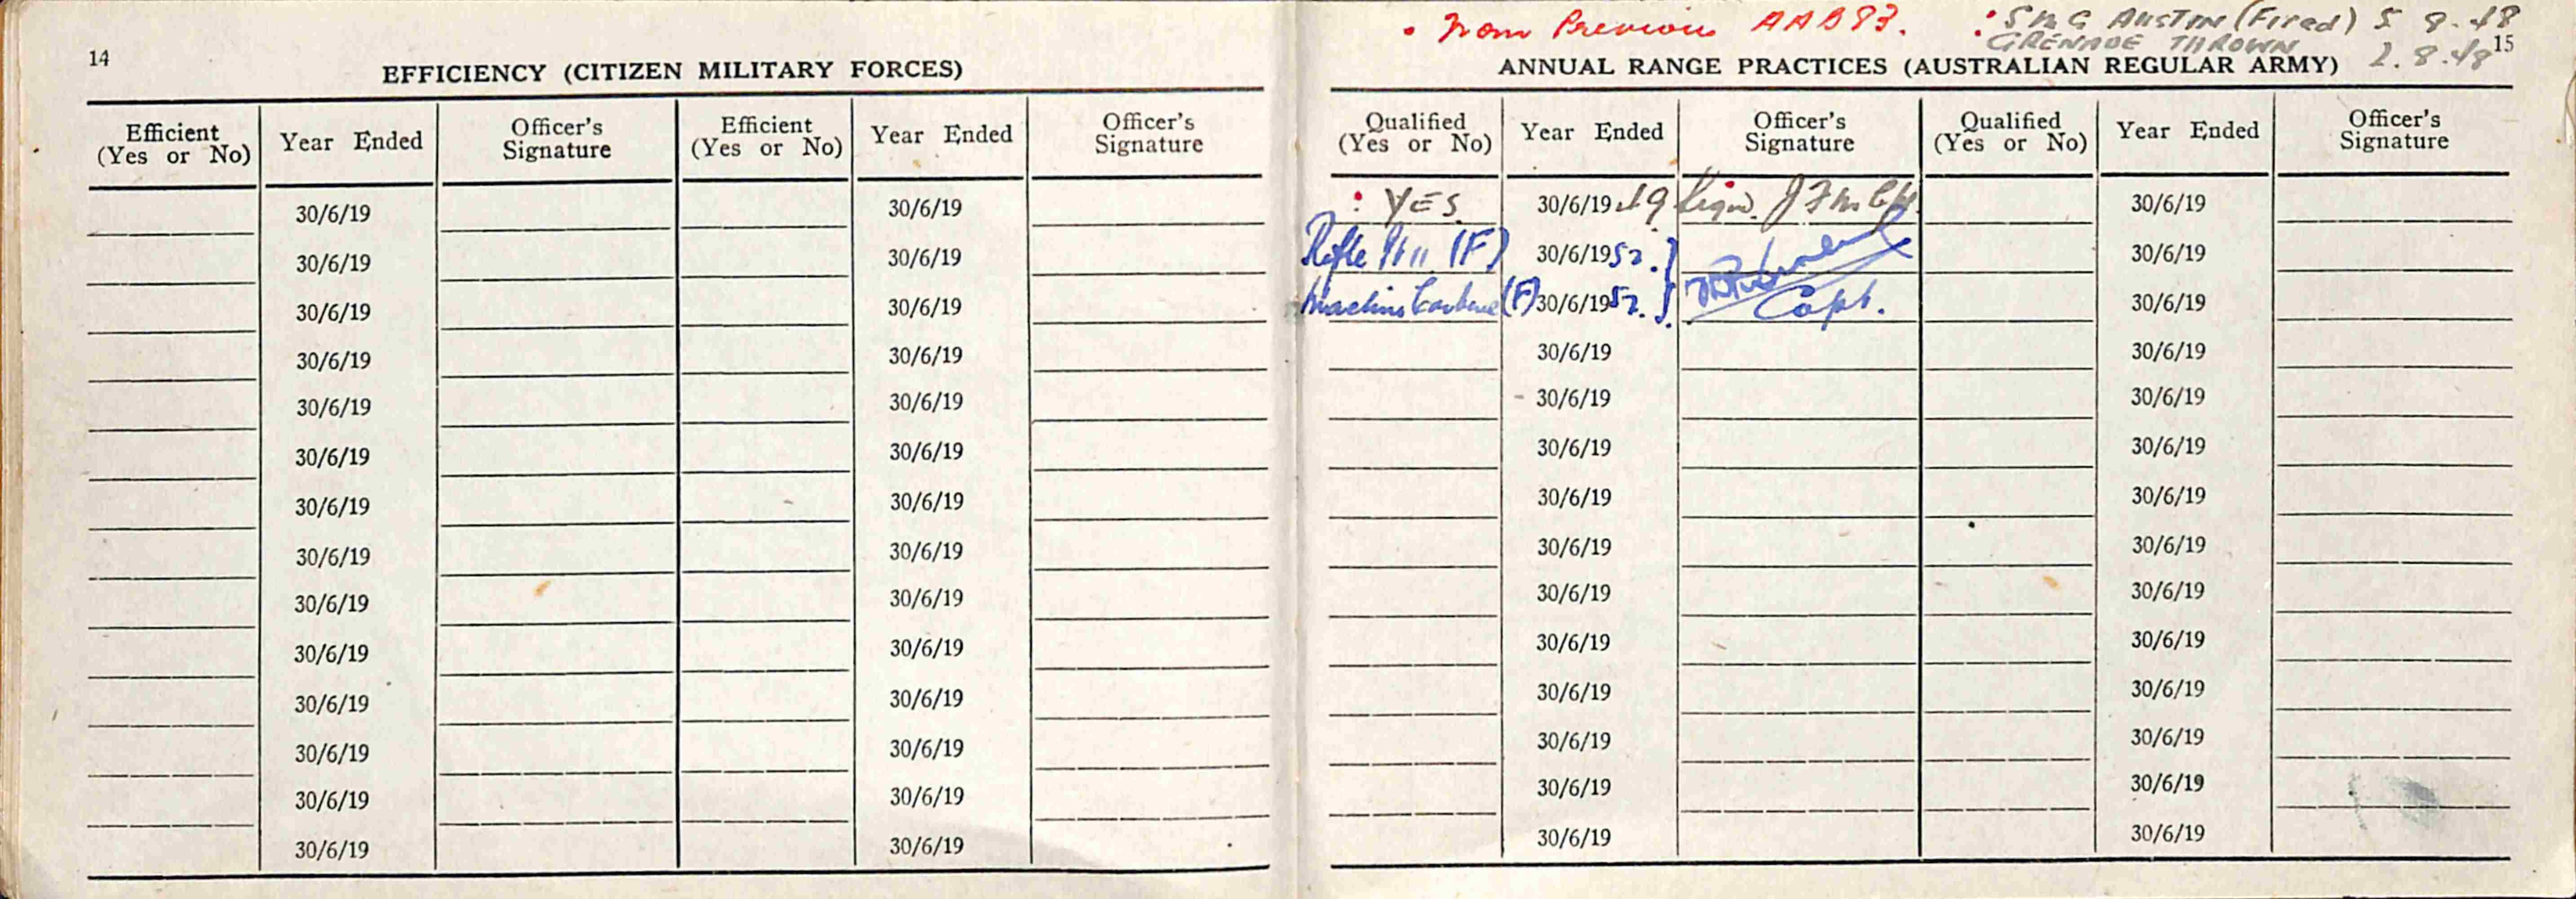 14
EFFICIENCY (CITIZEN MILITARY FORCES)
Efficient (Yes or No) Year Ended Officer's Signature Efficient (Yes or No) Year Ended Officer's Signature
30/6/19 30/6/19
30/6/19 30/6/19
30/6/19 30/6/19
30/6/19 30/6/19
30/6/19 30/6/19
30/6/19 30/6/19
30/6/19 30/6/19
30/6/19 30/6/19
30/6/19 30/6/19
30/6/19 30/6/19
30/6/19 30/6/19
30/6/19 30/6/19
30/6/19 30/6/19
30/6/19 30/6/19
• From Previous AAB83. : SMG AUSTEN (Fired) 5 8.48
GRENADE THROWN 2.8.48
15
ANNUAL RANGE PRACTICES (AUSTRALIAN REGULAR ARMY)
Qualified (Yes or No) Year Ended Officer's Signature Qualified (Yes or No) Year Ended Officer's Signature
: YES 30/6/19 49 30/6/19
Rifle (F) 30/6/1952. 30/6/19
Machine Carbine (F) 30/6/1952. Capt. 30/6/19
30/6/19 30/6/19
30/6/19 30/6/19
30/6/19 30/6/19
30/6/19 30/6/19
30/6/19 30/6/19
30/6/19 30/6/19
30/6/19 30/6/19
30/6/19 30/6/19
30/6/19 30/6/19
30/6/19 30/6/19
30/6/19 30/6/19